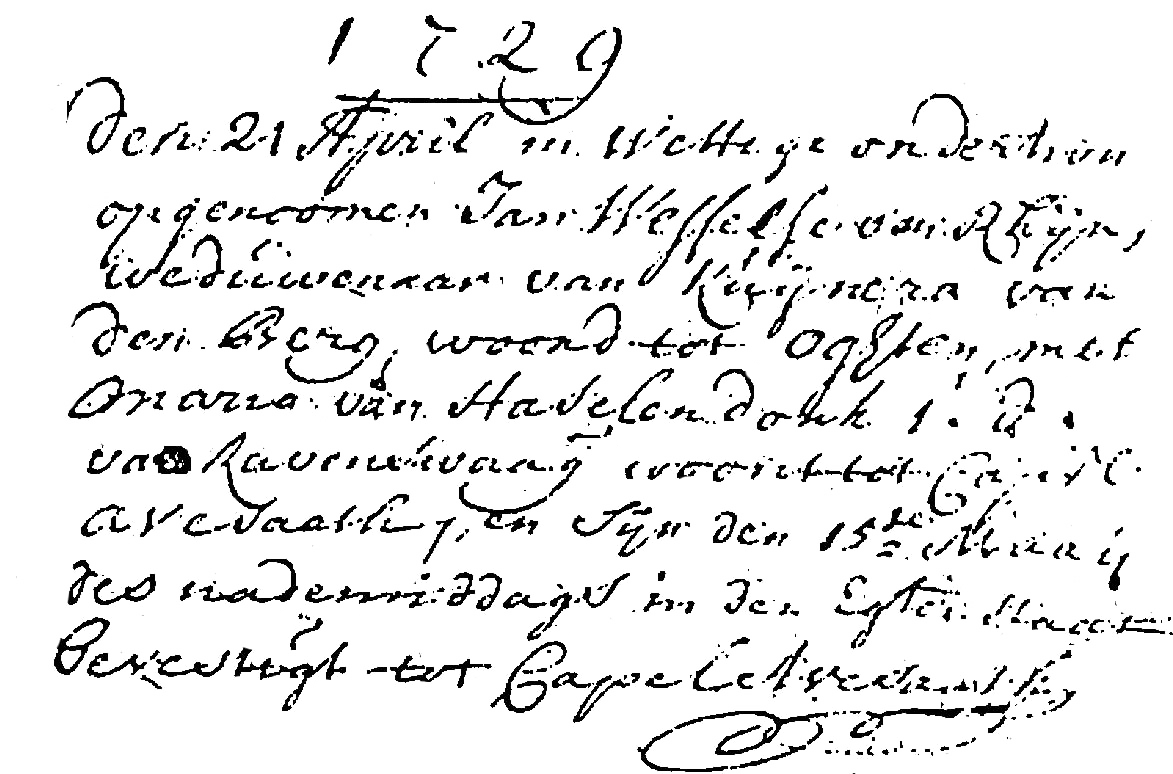 1729
den 21 April in Wettige ondertrou
opgenoomen Jan Wesselse van Rhijn,
weduwenaar van Kuijnera van
den Berg, woond tot Ogsten, met
Maria van Haselendonk j. d.
van Ravenswaaij woont tot Capel
Avesaath, en Sijn den 15de Maaij
des nademiddags in den Egten Staat
bevestigt tot Capel Avesaath,